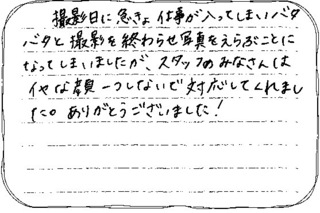 撮影日に急きょ仕事が入ってしまいバタ
バタと撮影を終わらせ写真をえらぶことに
なってしまいましたが、スタッフのみなさんは
イヤな顔一つしないで対応してくれまし
た。ありがとうございました!